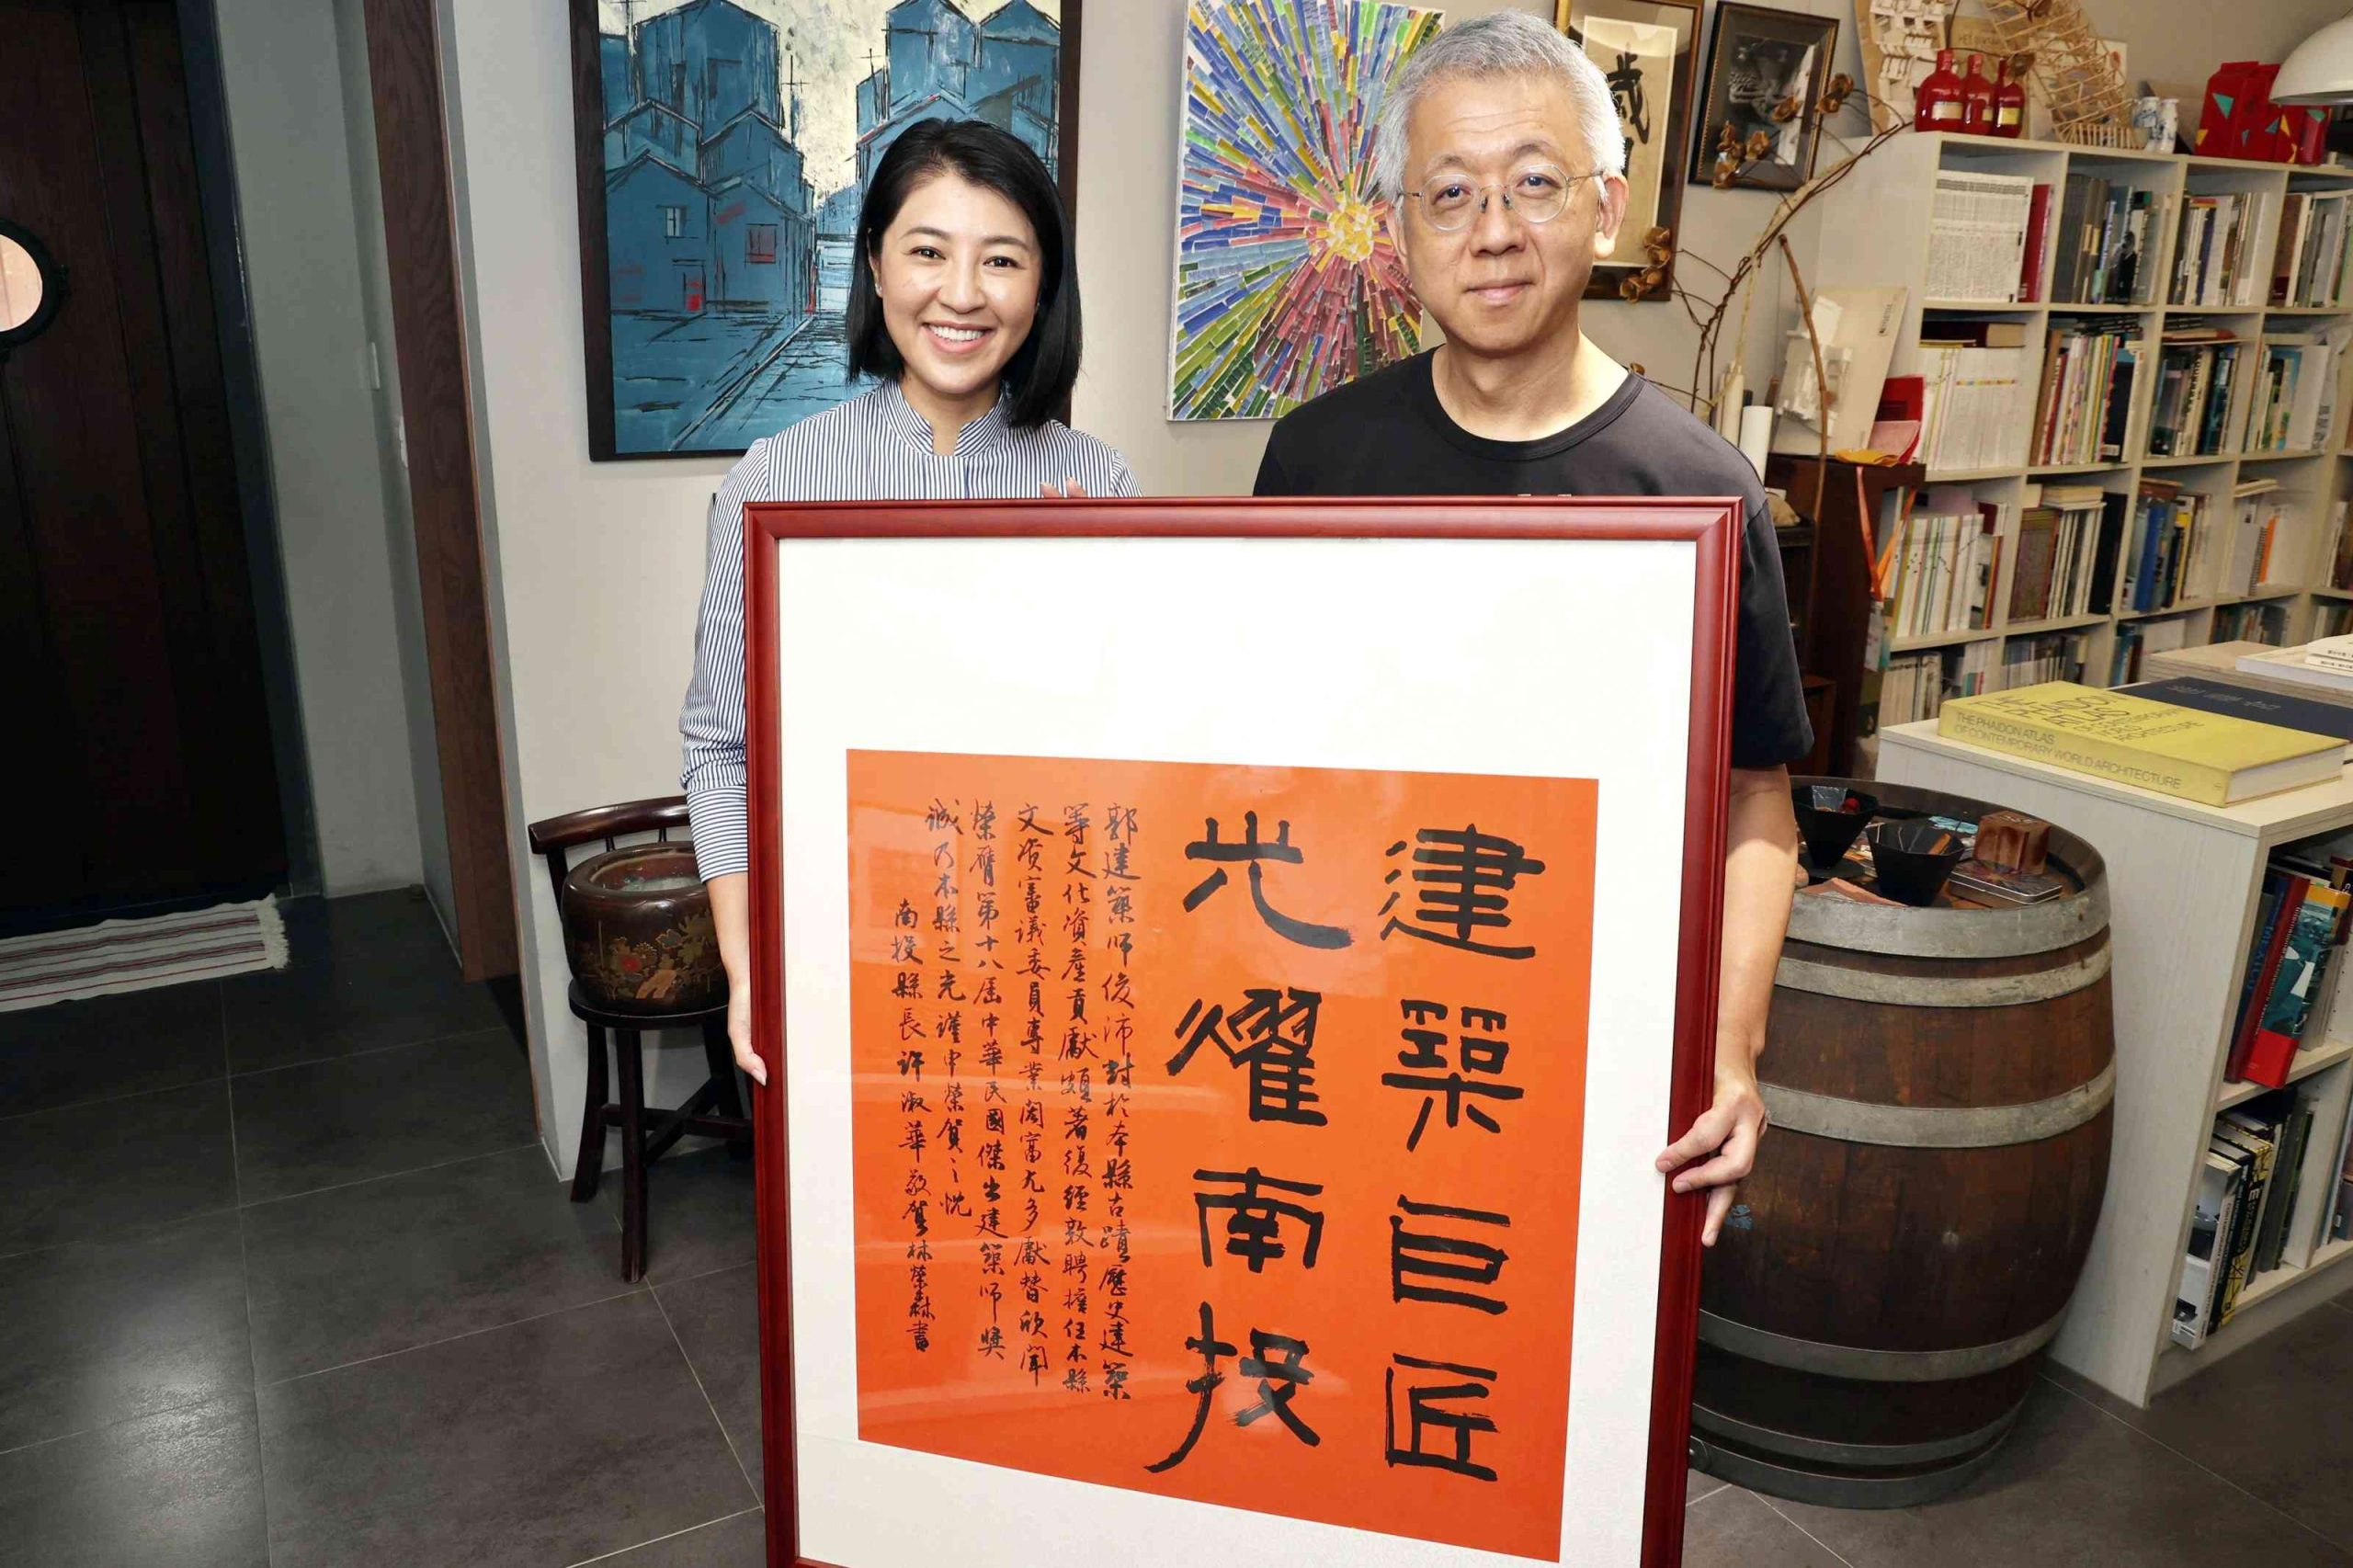 建築巨匠
光耀南投
郭建築師俊沛對於本縣古蹟歷史建築
等文化資產貢獻頗著復經敦聘擔任本縣
文資審議委員專業閎富尤多獻替欣聞
榮膺第十八屆中華民國傑出建築師獎
誠乃本縣之光謹申榮賀之忱
南投縣長許淑華敬賀林榮森書
THE PHAIDON ATLAS
OF CONTEMPORARY WORLD ARCHITECTURE